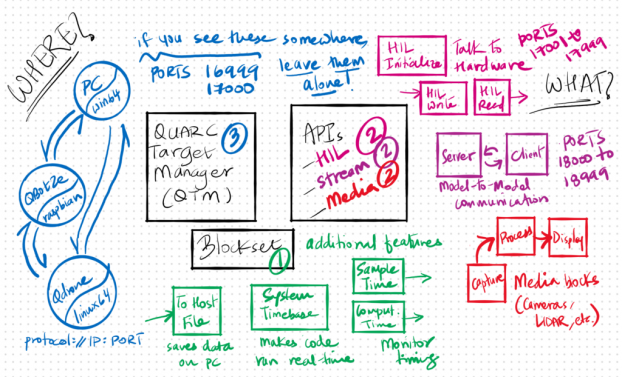 WHERE?
if you see these somewhere,
leave them
alone!
PORTS 16999
17000
HIL
Initialize
Talk to
Hardware
PORTS
17001 to
17999
HIL
Write
HIL
Read
WHAT?
PC
win64
QBot2e
raspbian
Qdrone
linux64
protocol://IP:PORT
QUARC
Target
Manager
(QTM)
3
APIs
- HIL 2
- stream 2
- Media 2
Server
Client
Model-to-Model
communication
PORTS
18000 to
18999
Blockset
1
additional features
To Host
File
saves data
on PC
System
Timebase
makes code
run real-time
Sample
Time
Comput.
Time
Monitor
timing
Capture
Process
Display
Media blocks
(Cameras,
LIDAR, etc.)